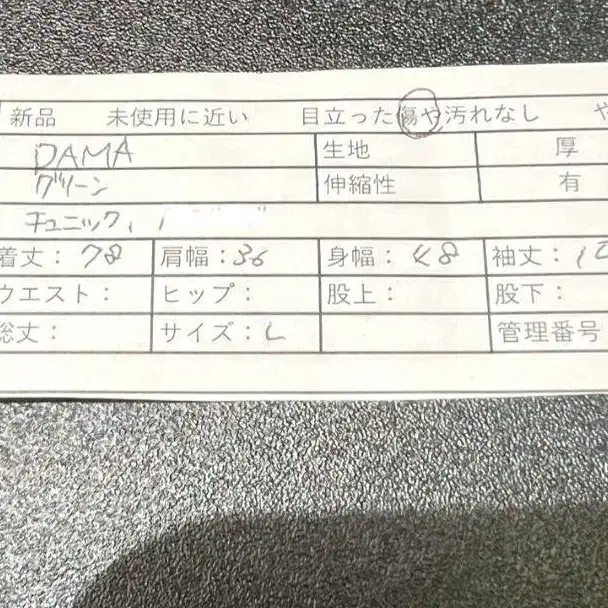 新品 未使用に近い 目立った傷や汚れなし や
DAMA 生地 厚
グリーン 伸縮性 有
チュニック、
着丈：78 肩幅：36 身幅：48 袖丈：
ウエスト： ヒップ： 股上： 股下：
総丈： サイズ：L 管理番号